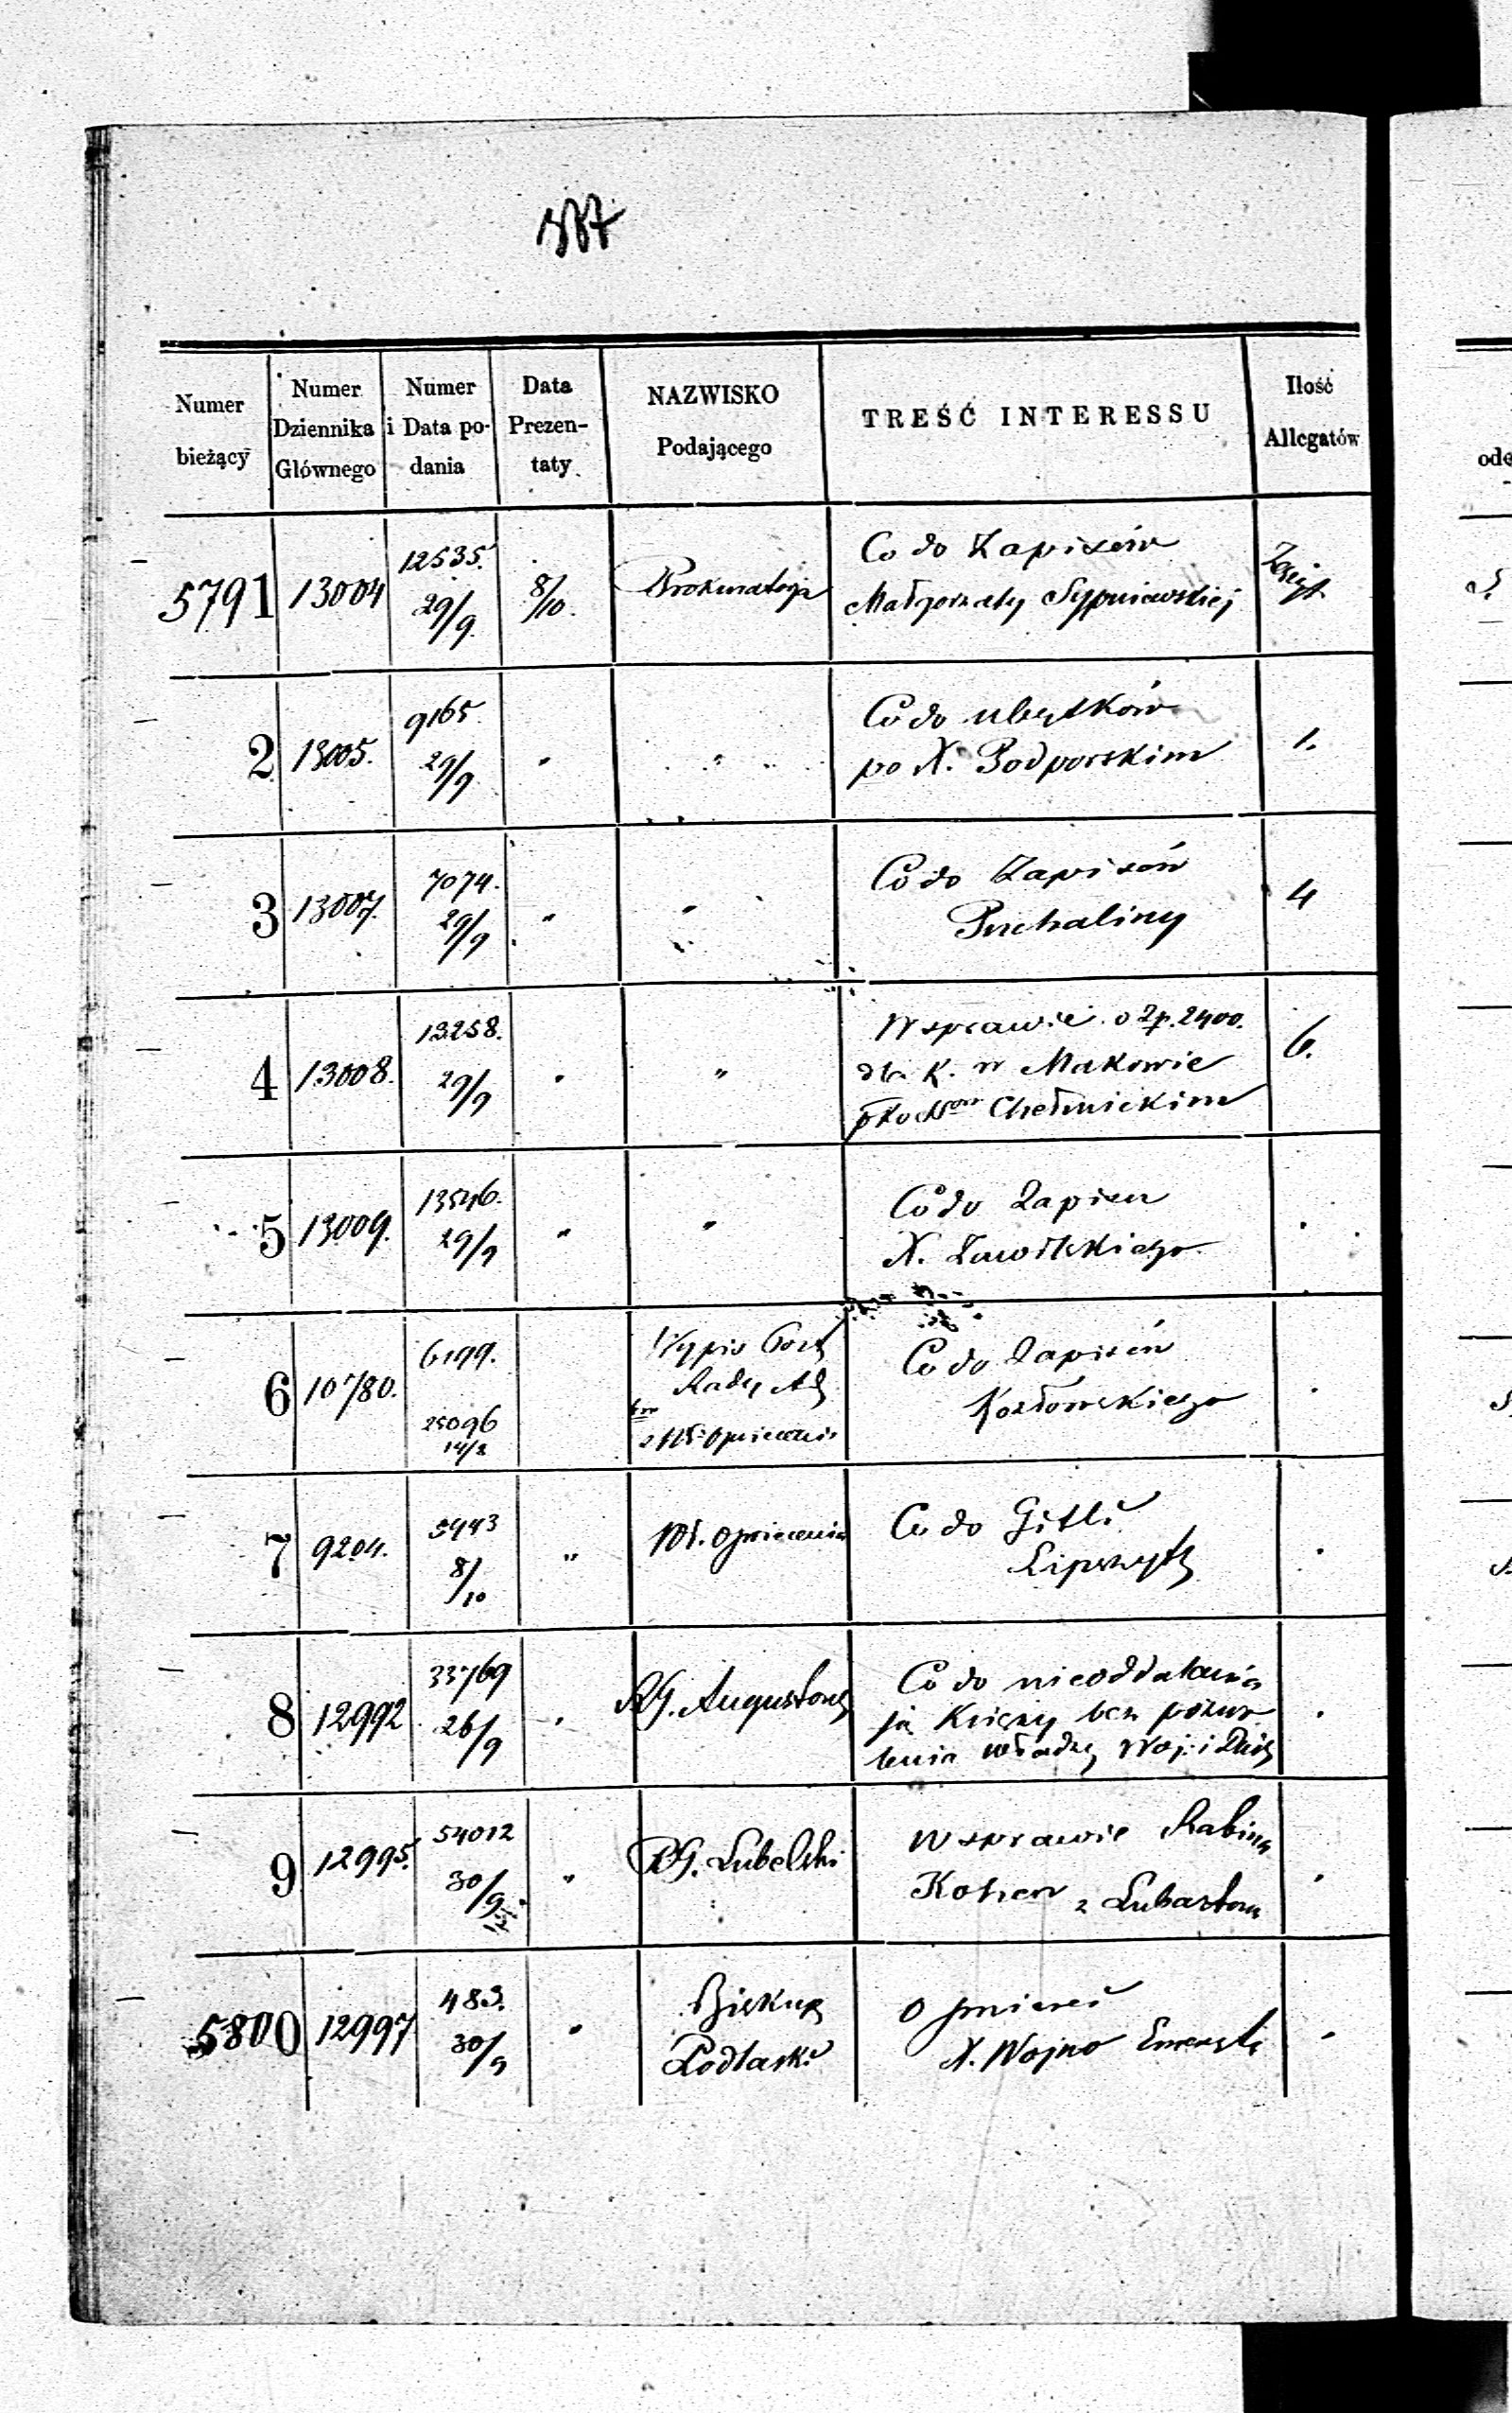 Numer bieżący
Numer Dziennika Głównego
Numer i Data po-dania
Data Prezen-taty
NAZWISKO Podającego
TREŚĆ INTERESSU
Ilość Allegatów
5791 13004 12535. 29/9. 8/10. Prokuratorja Co do Zapisów
Małgorzaty Sypniewskiej
2 13005. 9165. 29/9. " " Co do ubytków 1.
po X. Podporskim
3 13007. 7074. 29/9 " " Co do Zapisów 4
Puchaliny
4 13008. 13258. 29/9 " " W sprawie o Zp. 2400. 6.
dla K. w Makowie
Chełmickim
5 13009. 13546. 29/9 " " Co do Zapisu
X.
6 10780. 6199. Wypis Rady Co do Zapisów
25096 14/8 Kozłowskiego
7 9204. 5943 8/10 " Co do Gitli
Lipszytz
8 12992 33769 26/9 " RG. Augustows Co do nieoddalania
ją Księży bez pozwo
lenia władzy Woj. i
9 12995. 54012 30/9 " RG. Lubelski W sprawie Rabina
Kohen z Lubartowa
5800 12997 483. 30/9 " Biskup O śmierci
Podlaski X. Wojno Emeryta